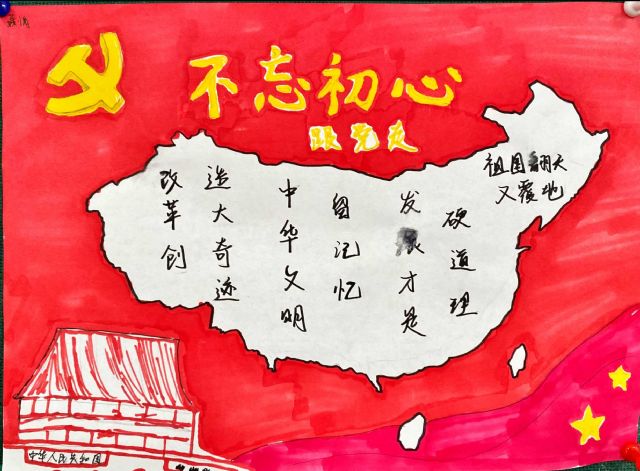 不忘初心
跟党走
祖国翻天
又覆地
硬道理
发展才是
留记忆
中华文明
造大奇迹
改革创
中华人民共和国